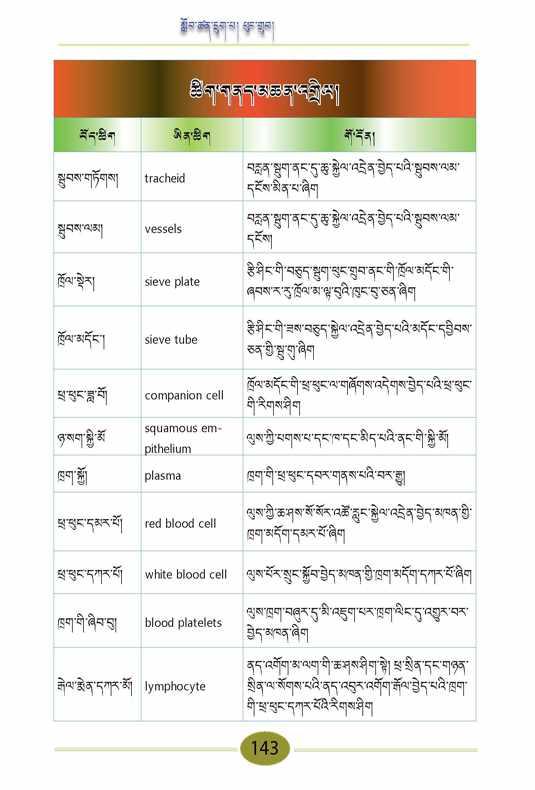 སློབ་ཚན་དྲུག་པ། ཕུང་གྲུབ།
ཚིག་གནད་མཆན་འགྲེལ།
བོད་ཚིག
ཨིན་ཚིག
གོ་དོན།
སྦུབས་གཏོགས།
tracheid
བརླན་སྡུག་ནང་དུ་ཆུ་སྐྱེལ་འདྲེན་བྱེད་པའི་སྦུབས་ལམ་
དངོས་མིན་པ་ཞིག
སྦུབས་ལམ།
vessels
བརླན་སྡུག་ནང་དུ་ཆུ་སྐྱེལ་འདྲེན་བྱེད་པའི་སྦུབས་ལམ་
དངོས།
ཁྲོལ་སྡེར།
sieve plate
རྩི་ཤིང་གི་བཅུད་སྡུག་ཕུང་གྲུབ་ནང་གི་ཁྲོལ་མདོང་གི་
ཞབས་ར་རུ་ཁྲོལ་མ་ལྟ་བུའི་ཁུང་བུ་ཅན་ཞིག
ཁྲོལ་མདོང་།
sieve tube
རྩི་ཤིང་གི་ཟས་བཅུད་སྐྱེལ་འདྲེན་བྱེད་པའི་མདོང་དབྱིབས་
ཅན་གྱི་སྦུ་གུ་ཞིག
ཕྲ་ཕུང་ཟླ་བོ།
companion cell
ཁྲོལ་མདོང་གི་ཕྲ་ཕུང་ལ་གཞོགས་འདེགས་བྱེད་པའི་ཕྲ་ཕུང་
གི་རིགས་ཤིག
ཉ་སག་སྐྱི་མོ
squamous em-
pithelium
ལུས་ཀྱི་པགས་པ་དང་ཁ་དང་མིད་པའི་ནང་གི་སྐྱི་མོ།
ཁྲག་སྐྱོ།
plasma
ཁྲག་གི་ཕྲ་ཕུང་དབར་གནས་པའི་བར་རྒྱུ།
ཕྲ་ཕུང་དམར་པོ།
red blood cell
ལུས་ཀྱི་ཆ་ཤས་སོ་སོར་འཚོ་རླུང་སྐྱེལ་འདྲེན་བྱེད་མཁན་གྱི་
ཁྲག་མདོག་དམར་པོ་ཞིག
ཕྲ་ཕུང་དཀར་པོ།
white blood cell
ལུས་པོར་སྲུང་སྐྱོབ་བྱེད་མཁན་གྱི་ཁྲག་མདོག་དཀར་པོ་ཞིག
ཁྲག་གི་ཞིབ་བུ།
blood platelets
ལུས་ཁྲག་བཞུར་དུ་མི་འཇུག་པར་ཁྲག་ལིང་དུ་འགྱུར་བར་
བྱེད་མཁན་ཞིག
རྒེལ་རྨེན་དཀར་མོ།
lymphocyte
ནད་འགོག་མ་ལག་གི་ཆ་ཤས་ཤིག་སྟེ། ཕྲ་སྲིན་དང་གཉན་
སྲིན་ལ་སོགས་པའི་ནད་འབུར་འགོག་རྒོལ་བྱེད་པའི་ཁྲག་
གི་ཕྲ་ཕུང་དཀར་པོའི་རིགས་ཤིག
143